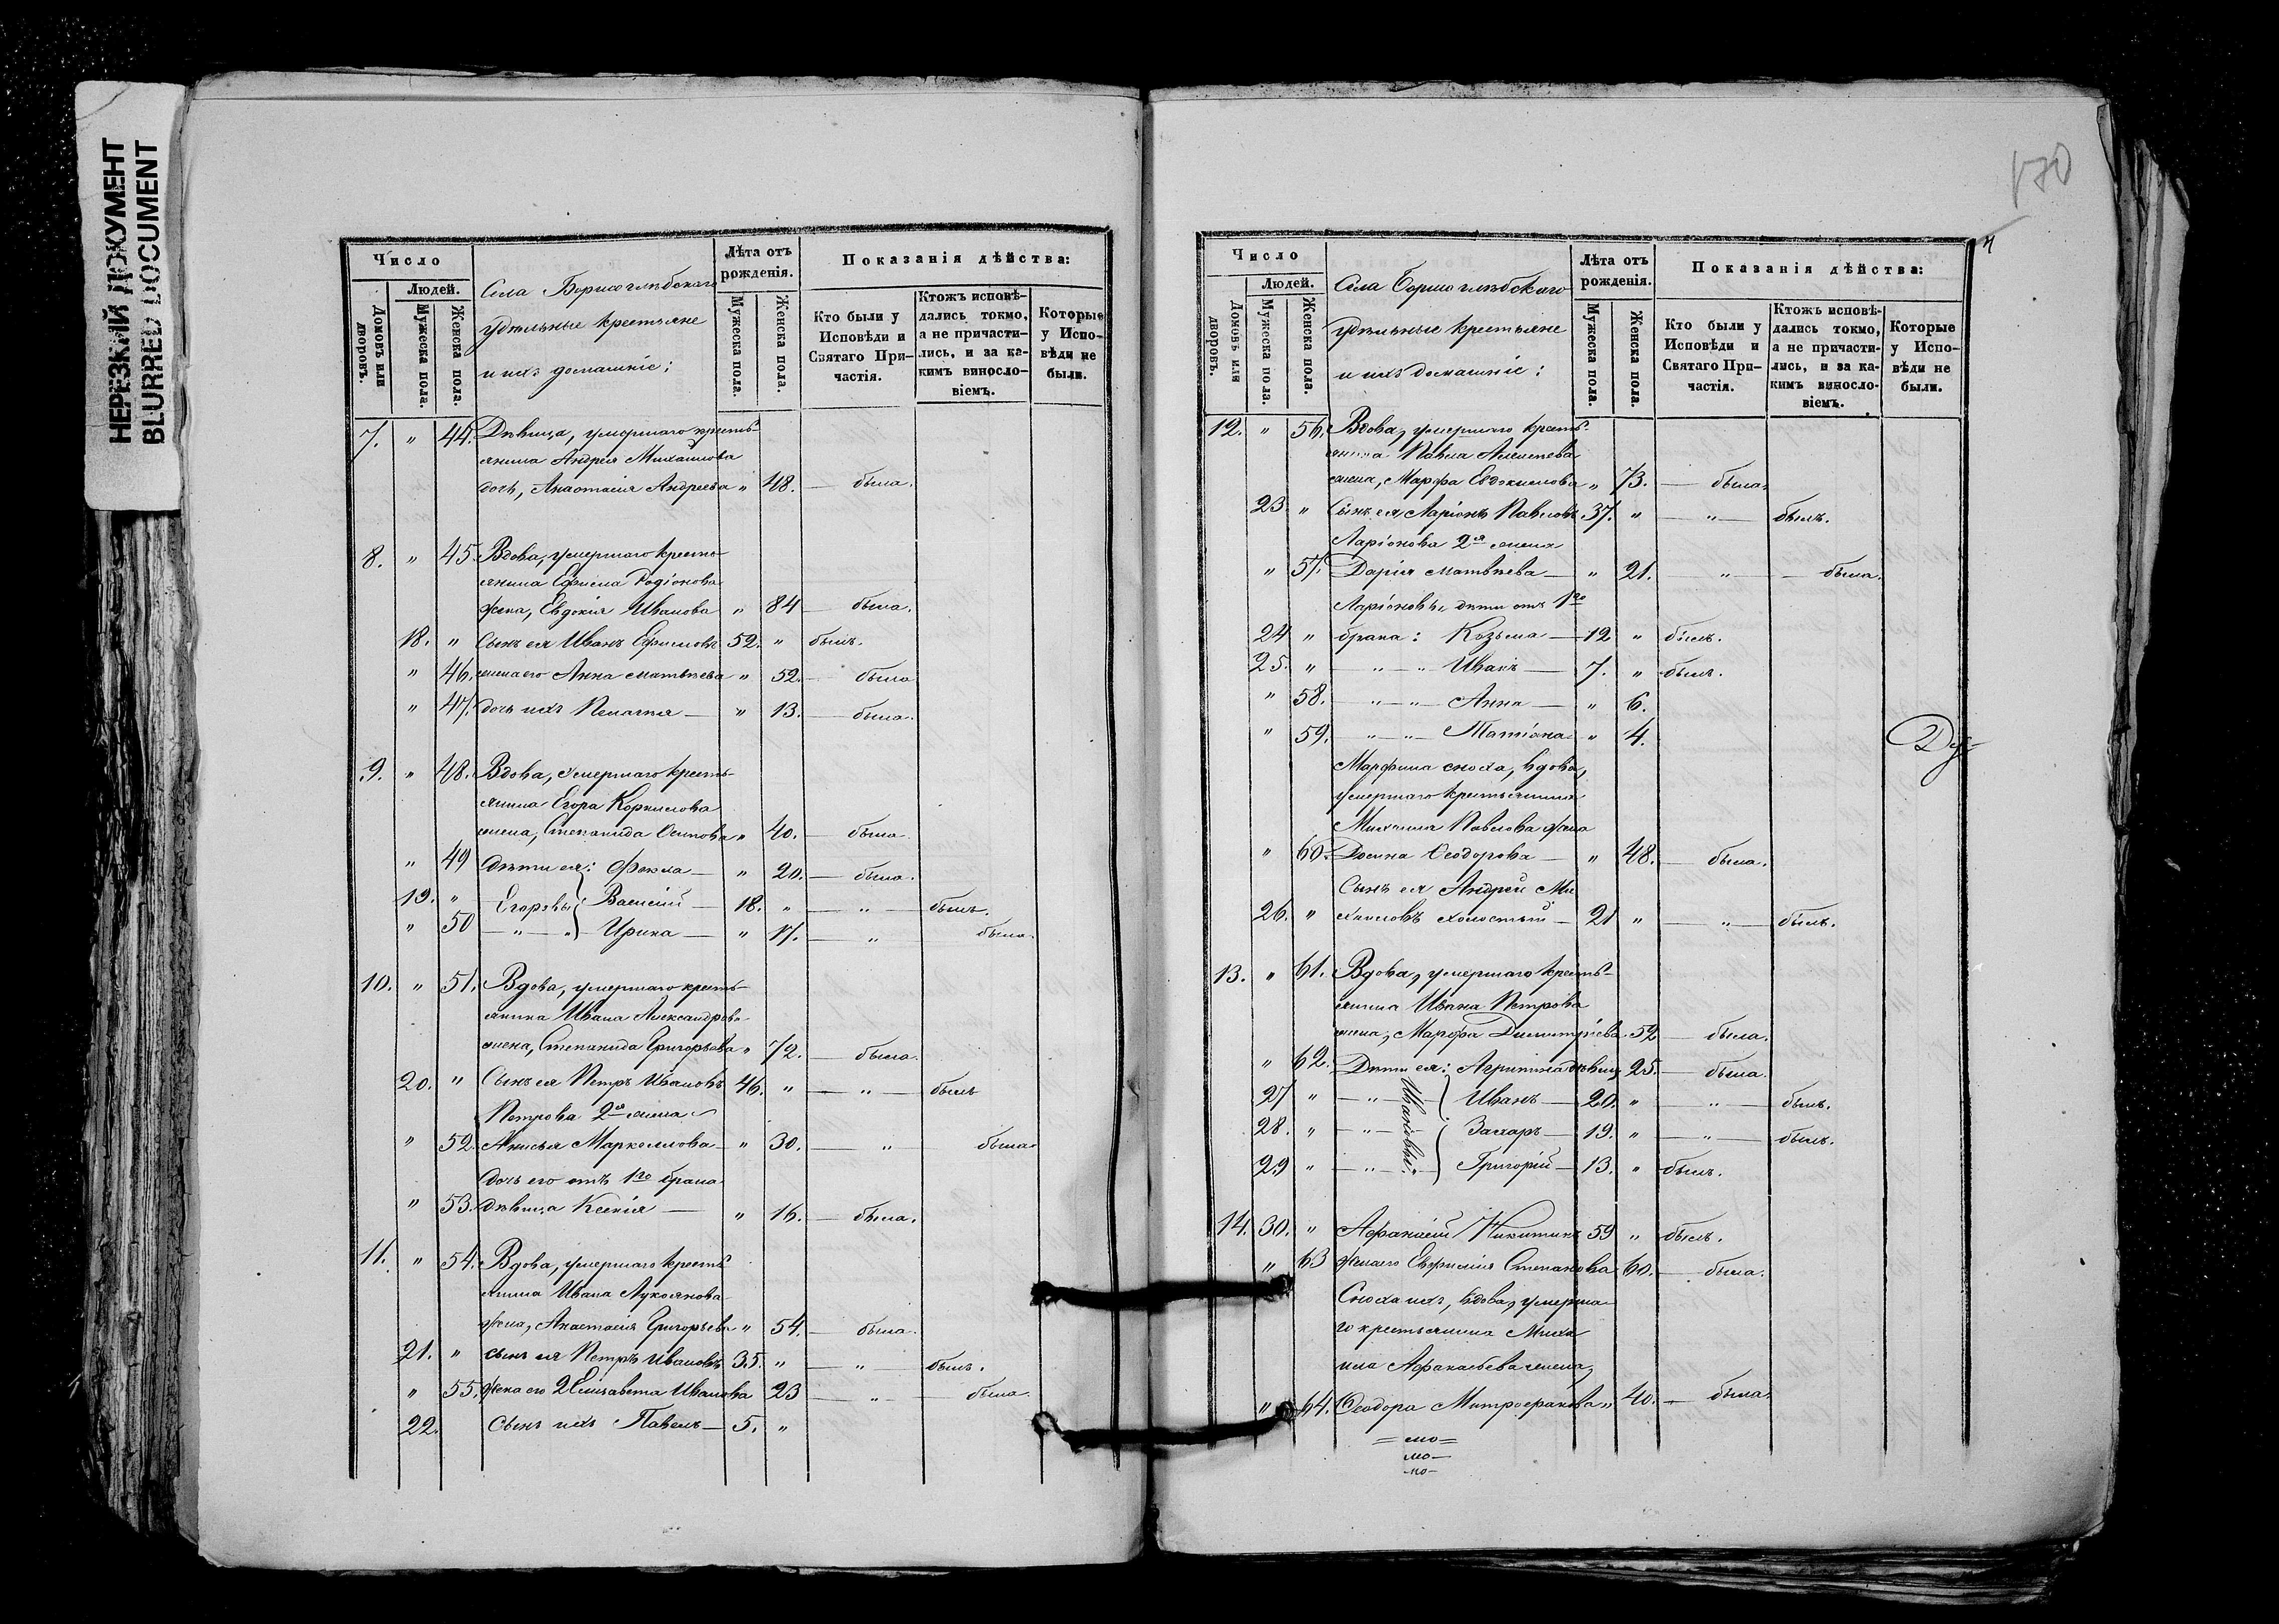 НЕРЕЗКИЙ ДОКУМЕНТ
BLURRED DOCUMENT
Число
Людей.
Домовъ или дворовъ.
Мужеска пола.
Женска пола.
Села Борисоглѣбскаго
удѣльные крестьяне
и ихъ домашніе;
Лѣта отъ рожденія.
Мужеска пола.
Женска пола.
Показанія дѣйства:
Кто были у Исповѣди и Святаго При-частія.
Ктожъ исповѣ-дались токмо, а не причасти-лись, и за ка-кимъ винosло-віемъ.
Которые у Испо-вѣди не были.
7. " 44. Дѣвица, умершаго кресть-
янина Андрея Михаилова
дочь, Анастасія Андреева " 48. — была.
8. " 45. Вдова, умершаго кресть-
янина Ефима Родіонова
жена, Евдокія Иванова " 84 — была.
18. " Сынъ ея Иванъ Ефимовъ 52. " былъ.
" 46. жена его Анна Матвѣева " 52. — была
" 47. дочь ихъ Пелагія — " 13. — была.
9. " 48. Вдова, умершаго кресть-
янина Егора Корнилова
жена, Степанида Осипова " 40. — была.
" 49 Дѣти ея: Фекла — " 20. — была.
19. " Егоровы Василій — 18. " — " — былъ.
" 50 — " — " Ирина — " 17. — " — была.
10. " 51. Вдова, умершаго кресть-
янина Ивана Александрова
жена, Степанида Григорьева " 72. — была.
20. " Сынъ ея Петръ Ивановъ 46. " — " — былъ
Петрова 2я жена
" 52. Анисья Маркеллова — " 30. — " — была.
Дочь его отъ 1го брака
" 53. дѣвица Ксенія — " 16. — была.
11. " 54. Вдова, умершаго кресть-
янина Ивана Лукоянова
жена, Анастасія Григорьева " 54. — была.
21. " сынъ ея Петръ Ивановъ 35. " — " — былъ.
" 55. жена его 2 Елизавета Иванова 23 — " — была.
22. Сынъ ихъ Павелъ — 5. "
170
Число
Людей.
Домовъ или дворовъ.
Мужеска пола.
Женска пола.
Села Борисоглѣбскаго
удѣльные крестьяне
и ихъ домашніе:
Лѣта отъ рожденія.
Мужеска пола.
Женска пола.
Показанія дѣйства:
Кто были у Исповѣди и Святаго При-частія.
Ктожъ исповѣ-дались токмо, а не причасти-лись, и за ка-кимъ винosло-віемъ.
Которые у Испо-вѣди не были.
12. " 56. Вдова, умершаго кресть-
янина Павла Алексѣева
жена, Марфа Евдокимова " 73. — была.
23 " Сынъ ея Ларіонъ Павловъ 37. " — " — былъ.
Ларіонова 2я жена
" 57. Дарія Матвѣева — " 21. — " — была.
Ларіоновы дѣти отъ 1го
24 " брака: Козьма — 12 " былъ.
25. " " — " Иванъ — 7. " былъ.
" 58. " — " Анна — " 6.
" 59. " — " Татіана " 4.
Марфина сноха, вдова,
умершаго крестьянина
Михаила Павлова жена
" 60. Домна Ѳеодорова — " 48. — была.
Сынъ ея Андрей Ми
26. " хаиловъ холостый — 21 " — " — былъ.
13. " 61. Вдова, умершаго кресть-
янина Ивана Петрова
жена, Марфа Димитріева 52 — была.
" 62. Дѣти ея: Агрипина дѣвица 25. — была.
Ивановы:
27 " — " — Иванъ — 20. " — " — былъ.
28. " — " — Захаръ — 19. " — " — былъ.
29 " — " — Григорій — 13. " былъ.
14. 30. " Афанасій Никитинъ 59 " былъ.
" 63 жена его Евфимія Степанова 60. — была.
Сноха ихъ, вдова, умерша
го крестьянина Миха
ила Афанасьева жена,
" 64. Ѳеодора Митрофанова " 40. — была.